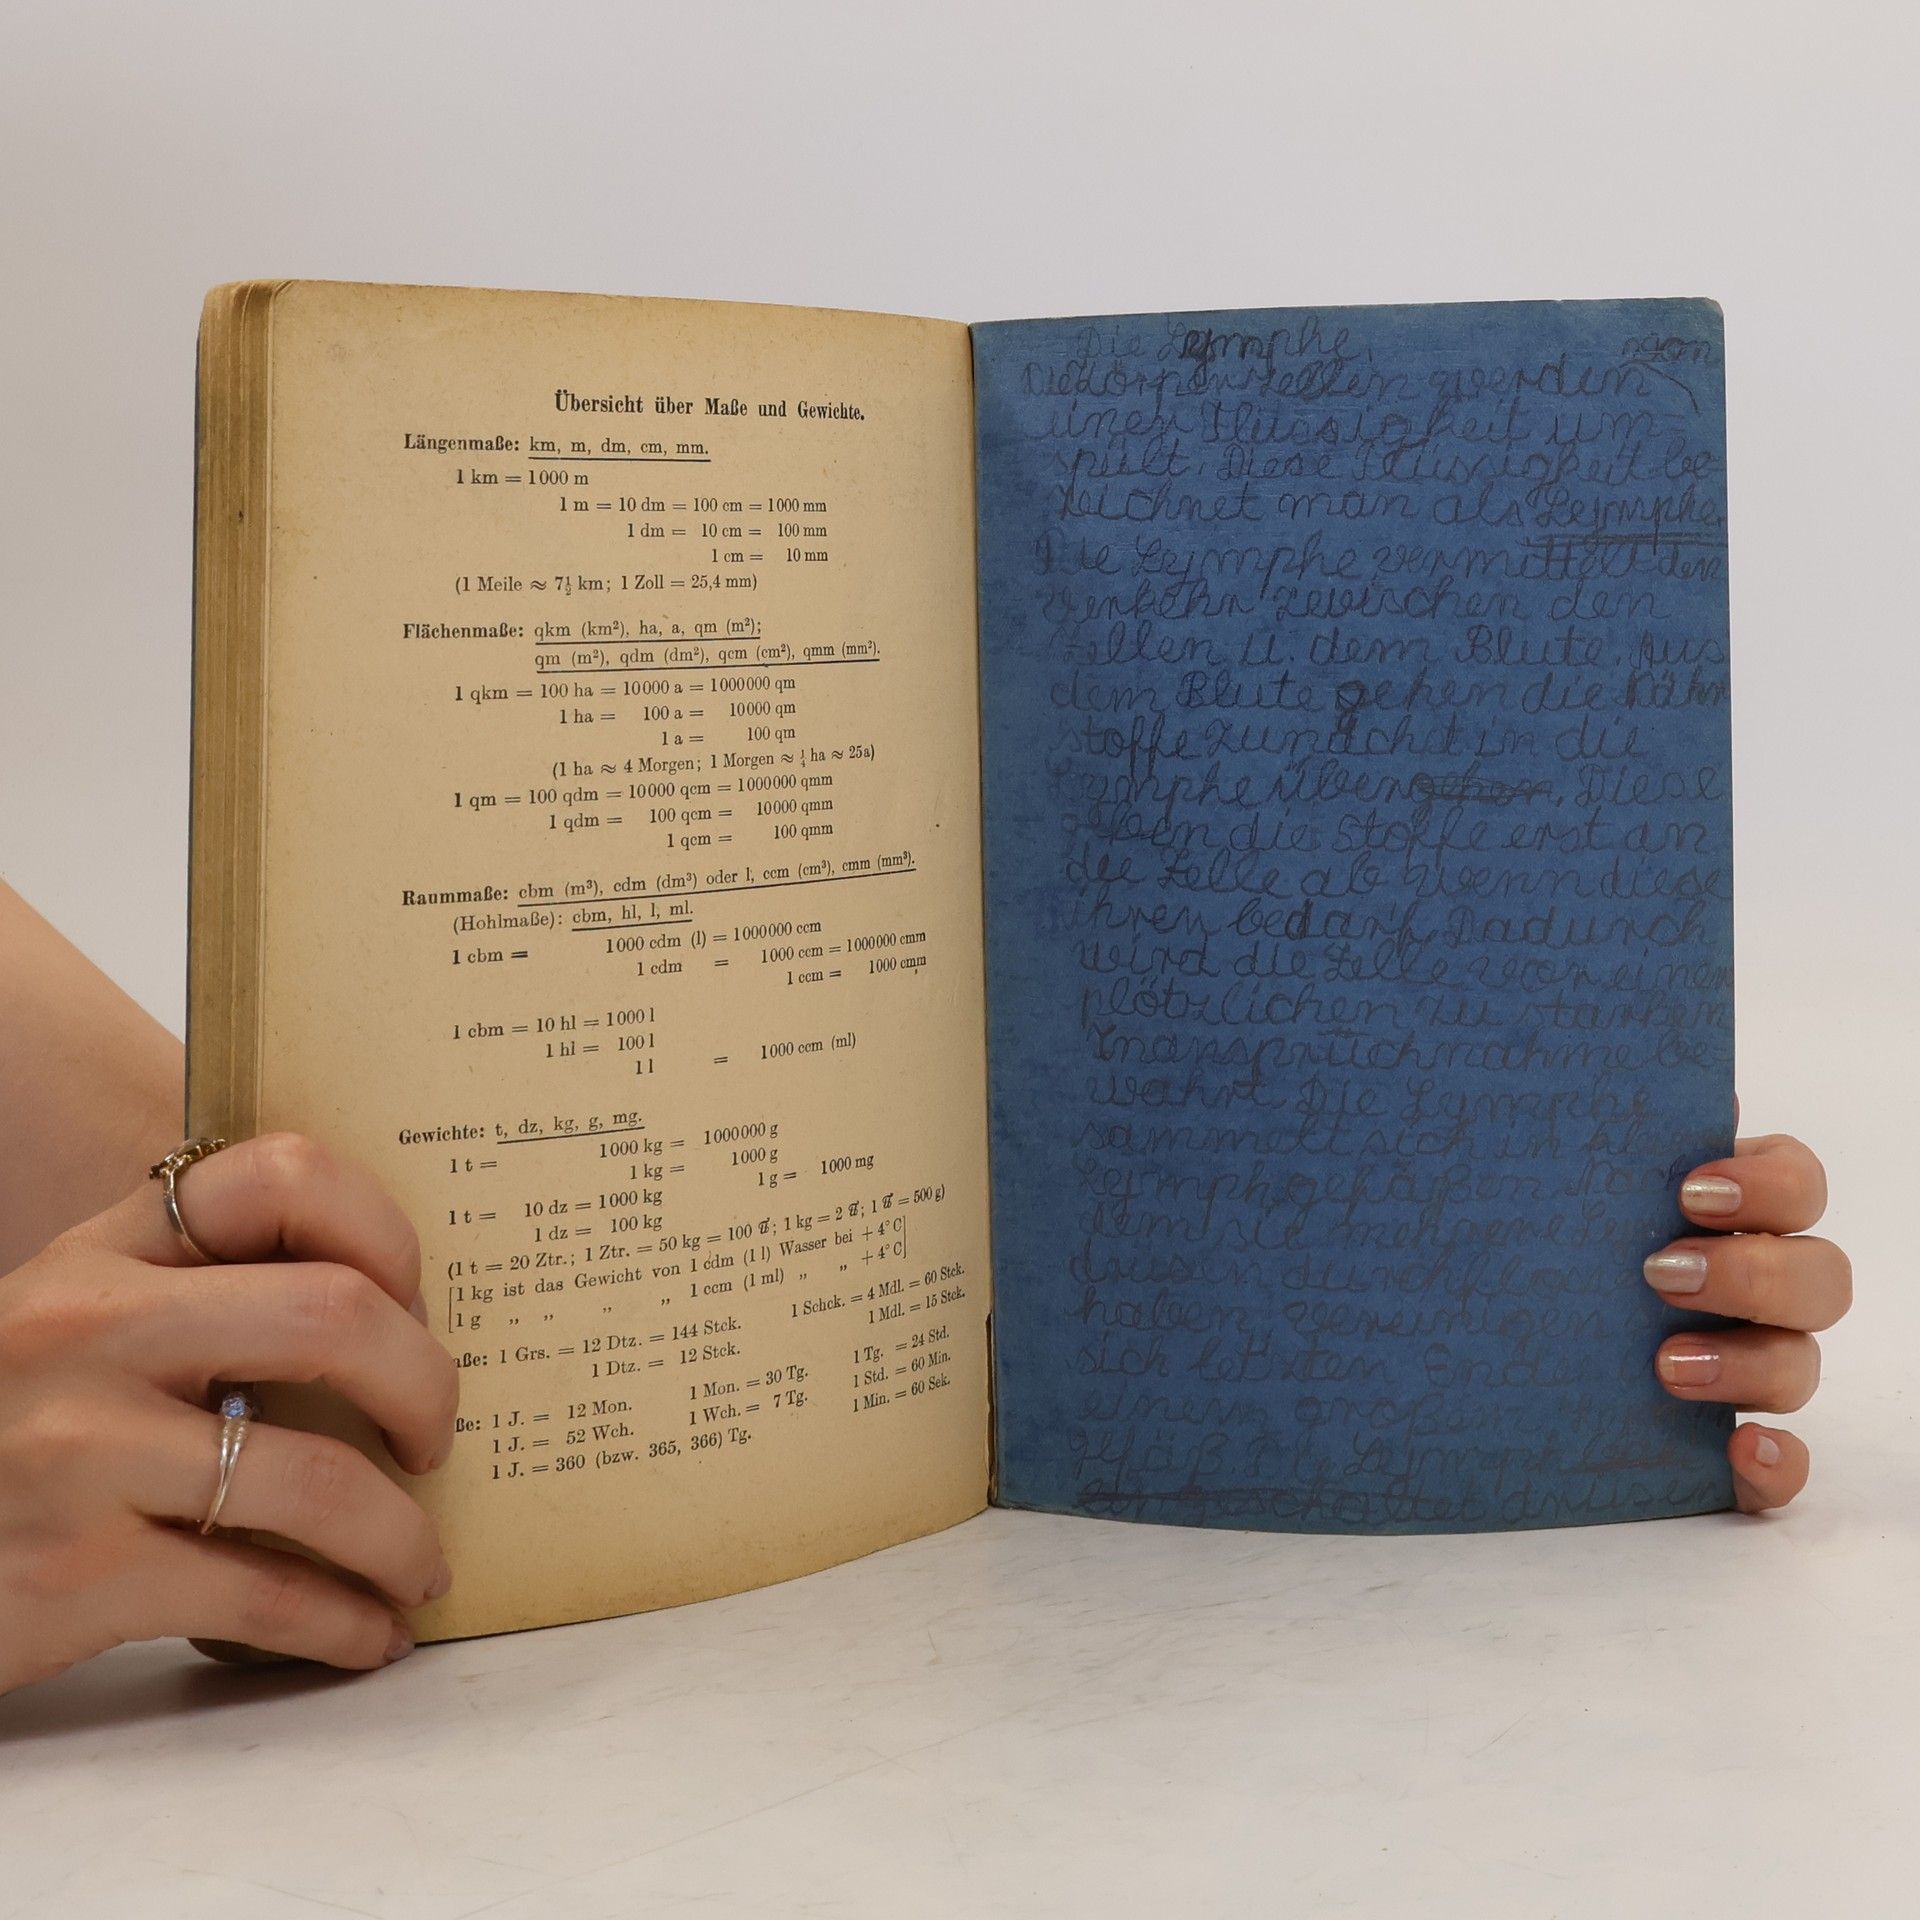 Übersicht über Maße und Gewichte.
Längenmaße: km, m, dm, cm, mm.
1 km = 1000 m
1 m = 10 dm = 100 cm = 1000 mm
1 dm = 10 cm = 100 mm
1 cm = 10 mm
(1 Meile ≈ 7½ km; 1 Zoll = 25,4 mm)
Flächenmaße: qkm (km²), ha, a, qm (m²);
qm (m²), qdm (dm²), qcm (cm²), qmm (mm²).
1 qkm = 100 ha = 10000 a = 1000000 qm
1 ha = 100 a = 10000 qm
1 a = 100 qm
(1 ha ≈ 4 Morgen; 1 Morgen ≈ ¼ ha ≈ 25a)
1 qm = 100 qdm = 10000 qcm = 1000000 qmm
1 qdm = 100 qcm = 10000 qmm
1 qcm = 100 qmm
Raummaße: cbm (m³), cdm (dm³) oder l, ccm (cm³), cmm (mm³).
(Hohlmaße): cbm, hl, l, ml.
1 cbm = 1000 cdm (l) = 1000000 ccm
1 cdm = 1000 ccm = 1000000 cmm
1 ccm = 1000 cmm
1 cbm = 10 hl = 1000 l
1 hl = 100 l
1 l = 1000 ccm (ml)
Gewichte: t, dz, kg, g, mg.
1 t = 1000 kg = 1000000 g
1 kg = 1000 g
1 g = 1000 mg
1 t = 10 dz = 1000 kg
1 dz = 100 kg
(1 t = 20 Ztr.; 1 Ztr. = 50 kg = 100 ℔; 1 kg = 2 ℔; 1 ℔ = 500 g)
[1 kg ist das Gewicht von 1 cdm (1 l) Wasser bei + 4° C]
[1 g „ „ „ „ 1 ccm (1 ml) „ „ + 4° C]
aße: 1 Grs. = 12 Dtz. = 144 Stck. 1 Schck. = 4 Mdl. = 60 Stck.
1 Dtz. = 12 Stck. 1 Mdl. = 15 Stck.
ße: 1 J. = 12 Mon. 1 Mon. = 30 Tg. 1 Tg. = 24 Std.
1 J. = 52 Wch. 1 Wch. = 7 Tg. 1 Std. = 60 Min.
1 J. = 360 (bzw. 365, 366) Tg. 1 Min. = 60 Sek.
Die Lymphe.
Die Körperzellen werden
einer Flüssigkeit um-
spült. Diese Flüssigkeit be-
zeichnet man als Lymphe.
Die Lymphe vermittelt den
Verkehr zwischen den
Zellen u. dem Blute. Aus
dem Blute gehen die Nähr
stoffe zunächst in die
Lymphe über. Diese
geben die Stoffe erst an
die Zelle ab wenn diese
ihren bedarf. Dadurch
wird die Zelle vor einer
plötzlichen zu starken
Inanspruchnahme be-
wahrt. Die Lymphe
sammelt sich in
Lymphgefäßen.
dem sie mehrere
haben vereinigen
sich letzten Ende
einem großen